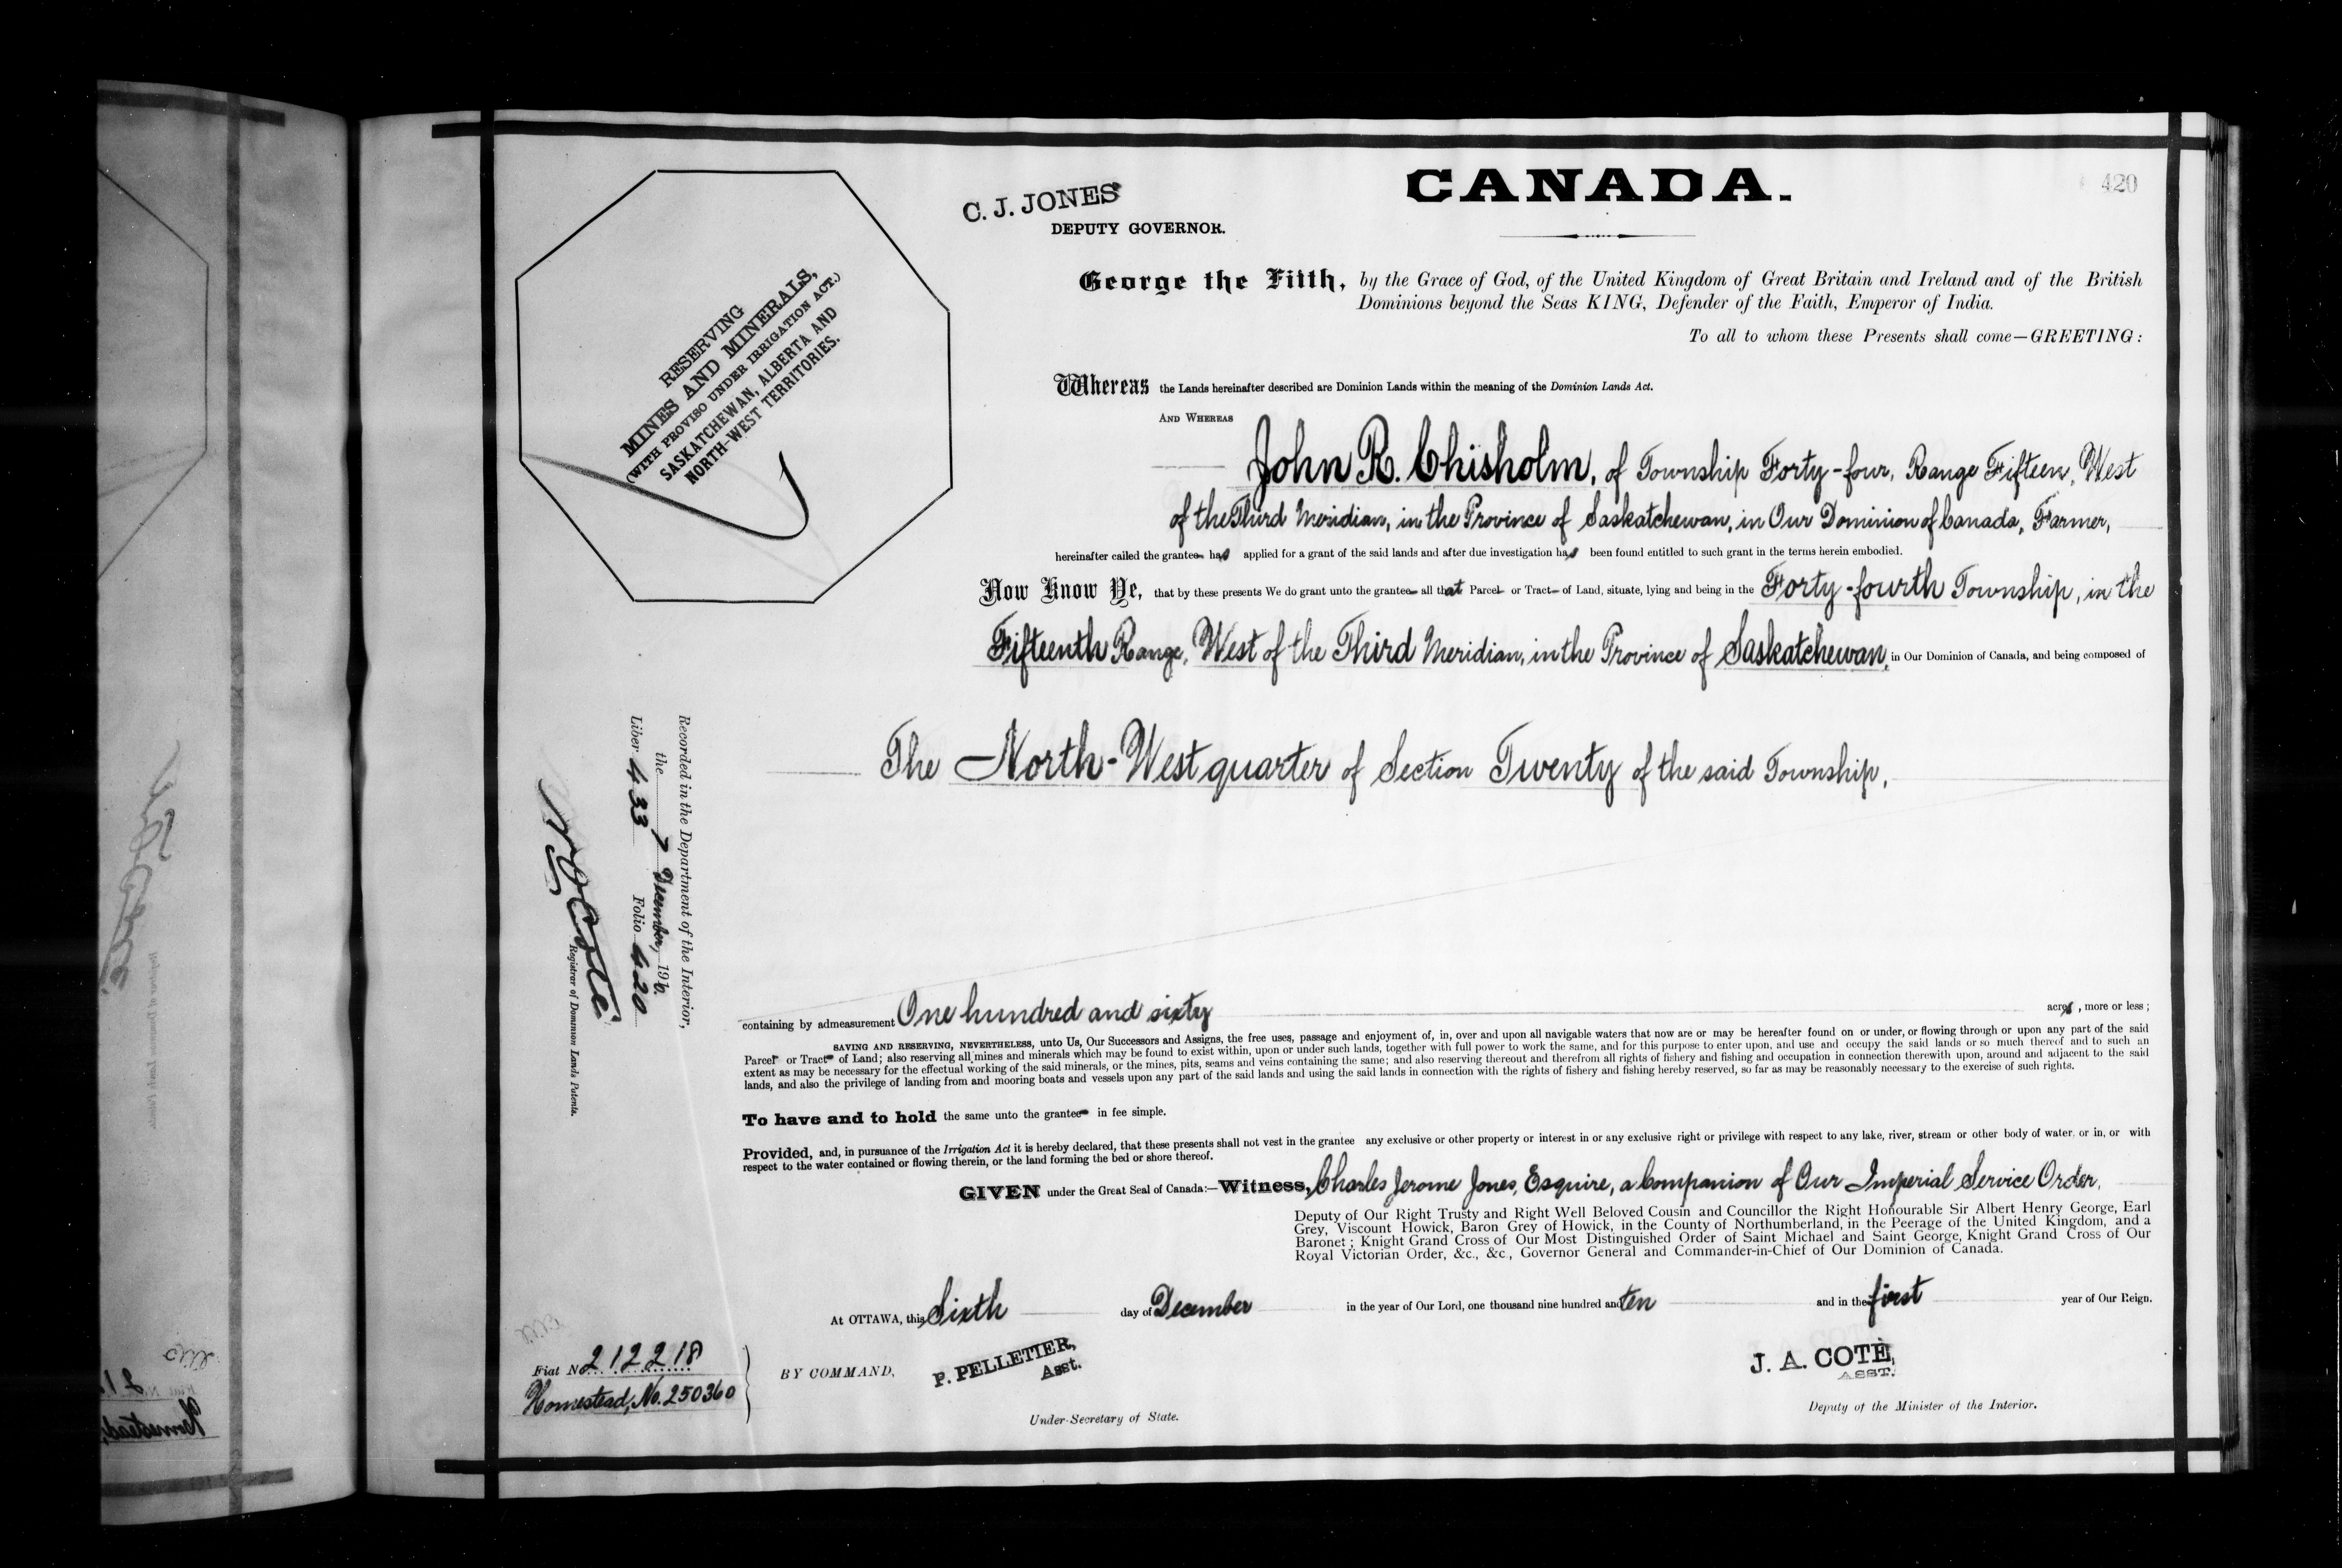 420
CANADA.
C. J. JONES
DEPUTY GOVERNOR.
RESERVING
MINES AND MINERALS,
(WITH PROVISO UNDER IRRIGATION ACT.)
SASKATCHEWAN, ALBERTA AND
NORTH-WEST TERRITORIES.
George the Fifth, by the Grace of God, of the United Kingdom of Great Britain and Ireland and of the British
Dominions beyond the Seas KING, Defender of the Faith, Emperor of India.
To all to whom these Presents shall come—GREETING:
Whereas the Lands hereinafter described are Dominion Lands within the meaning of the Dominion Lands Act.
AND WHEREAS
John R. Chisholm, of Township Forty-four, Range Fifteen, West
of the Third Meridian, in the Province of Saskatchewan, in Our Dominion of Canada, Farmer,
hereinafter called the grantee has applied for a grant of the said lands and after due investigation has been found entitled to such grant in the terms herein embodied.
Now Know Ye, that by these presents We do grant unto the grantee all that Parcel or Tract of Land, situate, lying and being in the Forty-fourth Township, in the
Fifteenth Range, West of the Third Meridian, in the Province of Saskatchewan, in Our Dominion of Canada, and being composed of
The North-West quarter of Section Twenty of the said Township,
Recorded in the Department of the Interior,
the 7 December, 1910.
Liber 433 Folio 420
N O Coté
Registrar of Dominion Lands Patents.
containing by admeasurement One hundred and sixty acres, more or less;
SAVING AND RESERVING, NEVERTHELESS, unto Us, Our Successors and Assigns, the free uses, passage and enjoyment of, in, over and upon all navigable waters that now are or may be hereafter found on or under, or flowing through or upon any part of the said
Parcel or Tract of Land; also reserving all mines and minerals which may be found to exist within, upon or under such lands, together with full power to work the same, and for this purpose to enter upon, and use and occupy the said lands or so much thereof and to such an
extent as may be necessary for the effectual working of the said minerals, or the mines, pits, seams and veins containing the same; and also reserving thereout and therefrom all rights of fishery and fishing and occupation in connection therewith upon, around and adjacent to the said
lands, and also the privilege of landing from and mooring boats and vessels upon any part of the said lands and using the said lands in connection with the rights of fishery and fishing hereby reserved, so far as may be reasonably necessary to the exercise of such rights.
To have and to hold the same unto the grantee in fee simple.
Provided, and, in pursuance of the Irrigation Act it is hereby declared, that these presents shall not vest in the grantee any exclusive or other property or interest in or any exclusive right or privilege with respect to any lake, river, stream or other body of water, or in, or with
respect to the water contained or flowing therein, or the land forming the bed or shore thereof.
GIVEN under the Great Seal of Canada:—Witness, Charles Jerome Jones, Esquire, a Companion of Our Imperial Service Order,
Deputy of Our Right Trusty and Right Well Beloved Cousin and Councillor the Right Honourable Sir Albert Henry George, Earl
Grey, Viscount Howick, Baron Grey of Howick, in the County of Northumberland, in the Peerage of the United Kingdom, and a
Baronet; Knight Grand Cross of Our Most Distinguished Order of Saint Michael and Saint George, Knight Grand Cross of Our
Royal Victorian Order, &c., &c., Governor General and Commander-in-Chief of Our Dominion of Canada.
At OTTAWA, this Sixth day of December in the year of Our Lord, one thousand nine hundred and ten and in the first year of Our Reign.
Fiat No. 212218
Homestead, No. 250360
BY COMMAND,
P. PELLETIER,
Asst.
Under-Secretary of State.
J. A. COTÉ,
ASST.
Deputy of the Minister of the Interior.